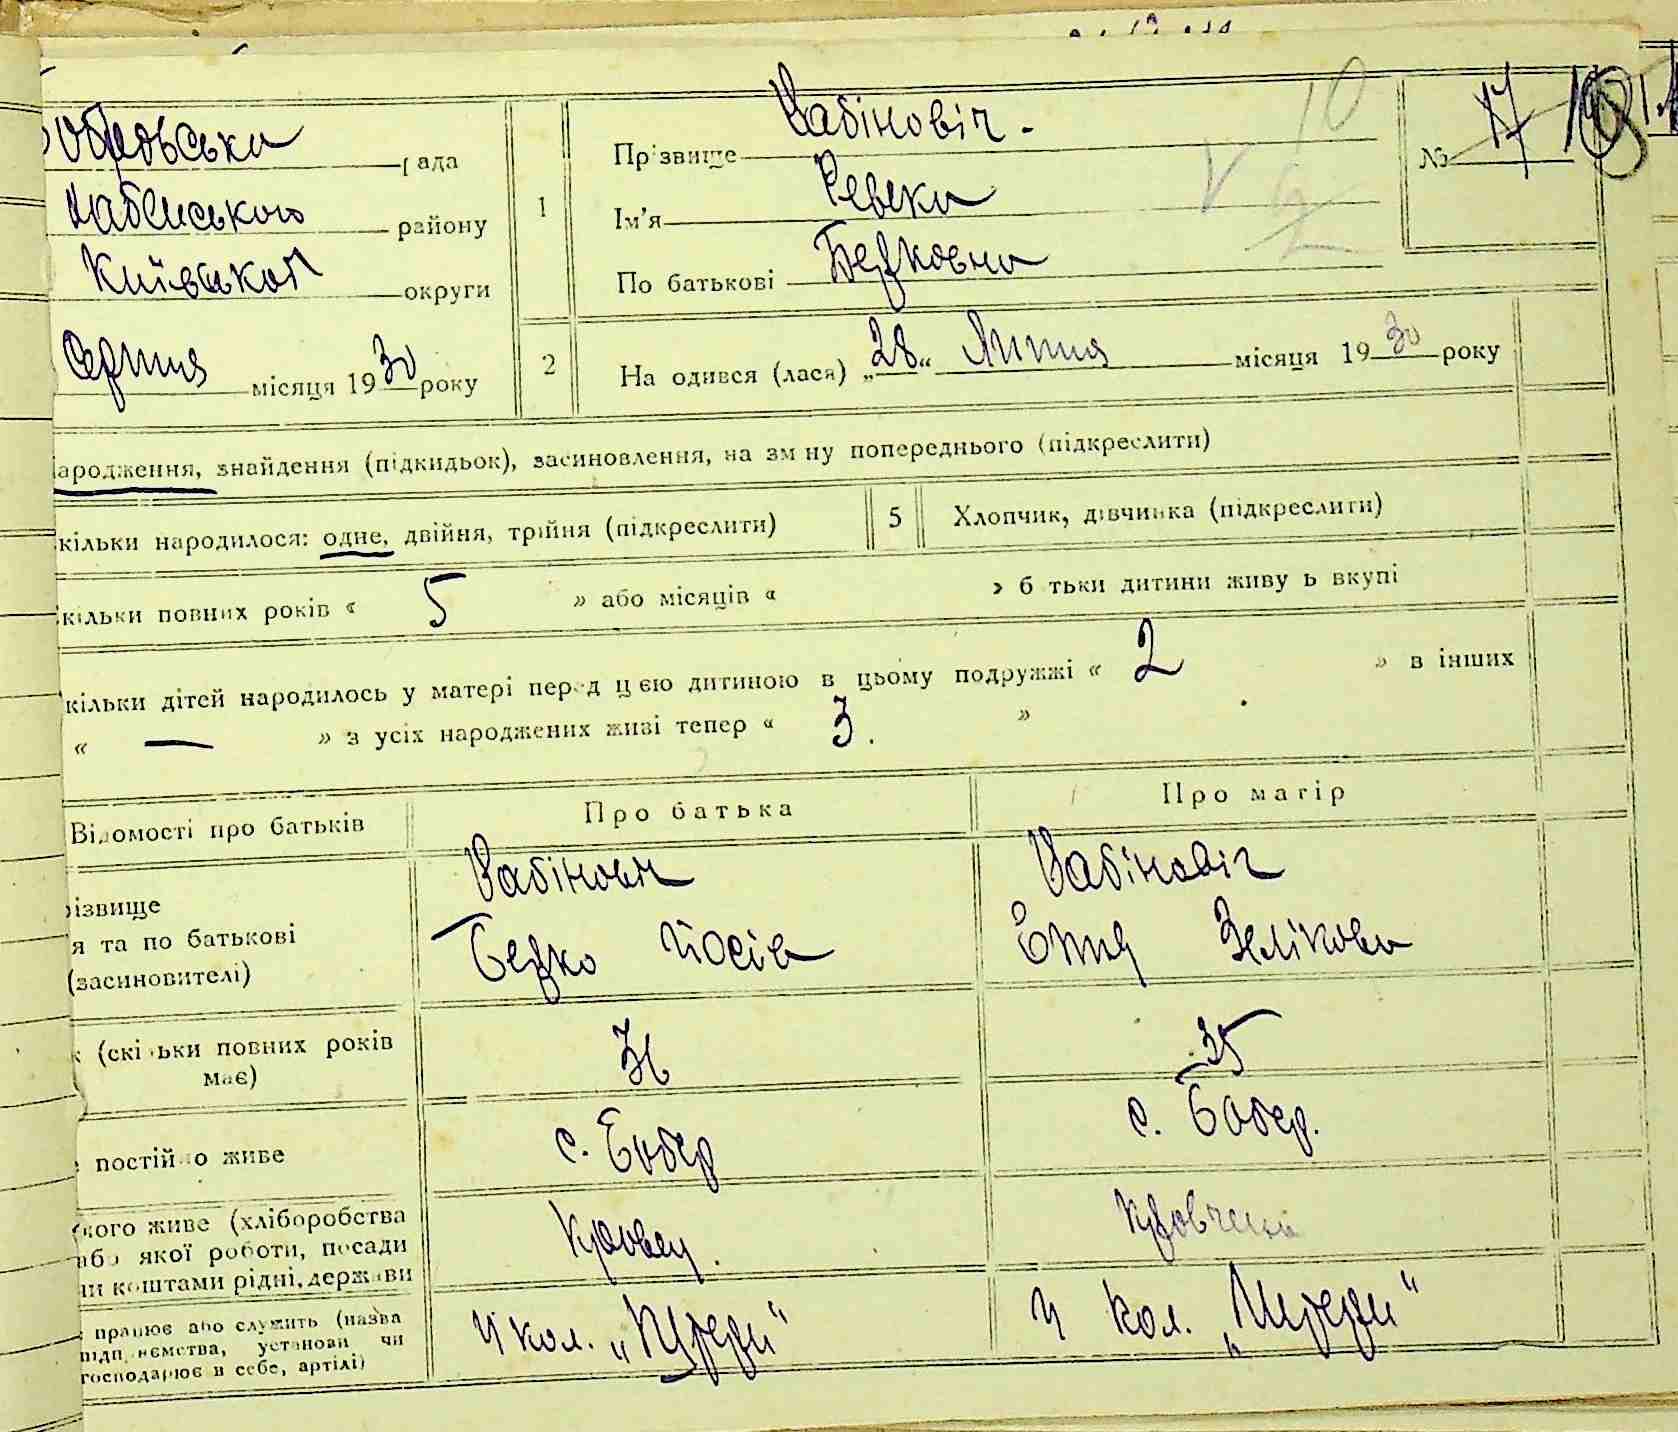 Бобровська рада
Київської округи
Серпня місяця 1930 року
1
Прізвище Рабіновіч.
Ім'я Ревека
По батькові Берковна
№ 17
10
2
На одився (лася) „28“ Липня місяця 1930 року
ародження, знайдення (підкидьок), засиновлення, на зм ну попереднього (підкреслити)
кільки народилося: одне, двійня, трійня (підкреслити)
5 Хлопчик, дівчинка (підкреслити)
кільки повних років « 5 » або місяців « » б тьки дитини живу ь вкупі
кільки дітей народилось у матері перед цією дитиною в цьому подружжі « 2 » в інших
« — » з усіх народжених живі тепер « 3. »
Відомості про батьків
Про батька
Про матір
різвище
я та по батькові
(засиновителі)
Рабіновіч
Берко Йосів
Рабіновіч
Етя Зелікова
к (скільки повних років
має)
25
е постійно живе
с. Бобер
с. Бобер.
кого живе (хліборобства
або якої роботи, посади
чи коштами рідні, держави
Кравец.
працює або служить (назва
підприємства, установи чи
господарює в себе, артілі)
У кол.
У кол.